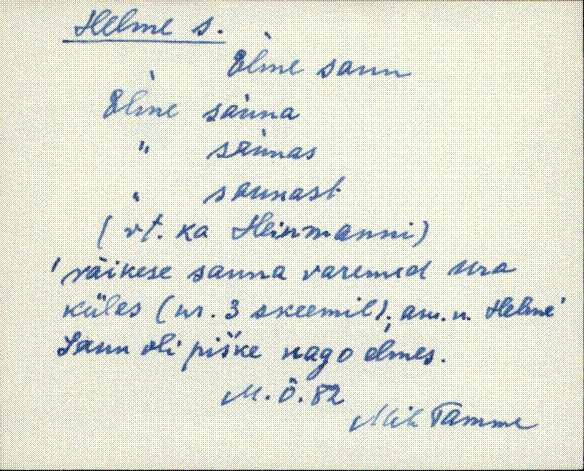 Helme s.
Èlme saun
Èlme sàuna
" sàunas
" saunast
(vt. ka Heinmanni)
'väikese sauna varemed Ura
küles (nr. 3 skeemil), am. n. Helme'
Saun oli piśke nago elmes.
M. Ö. 82
Mih Tamme